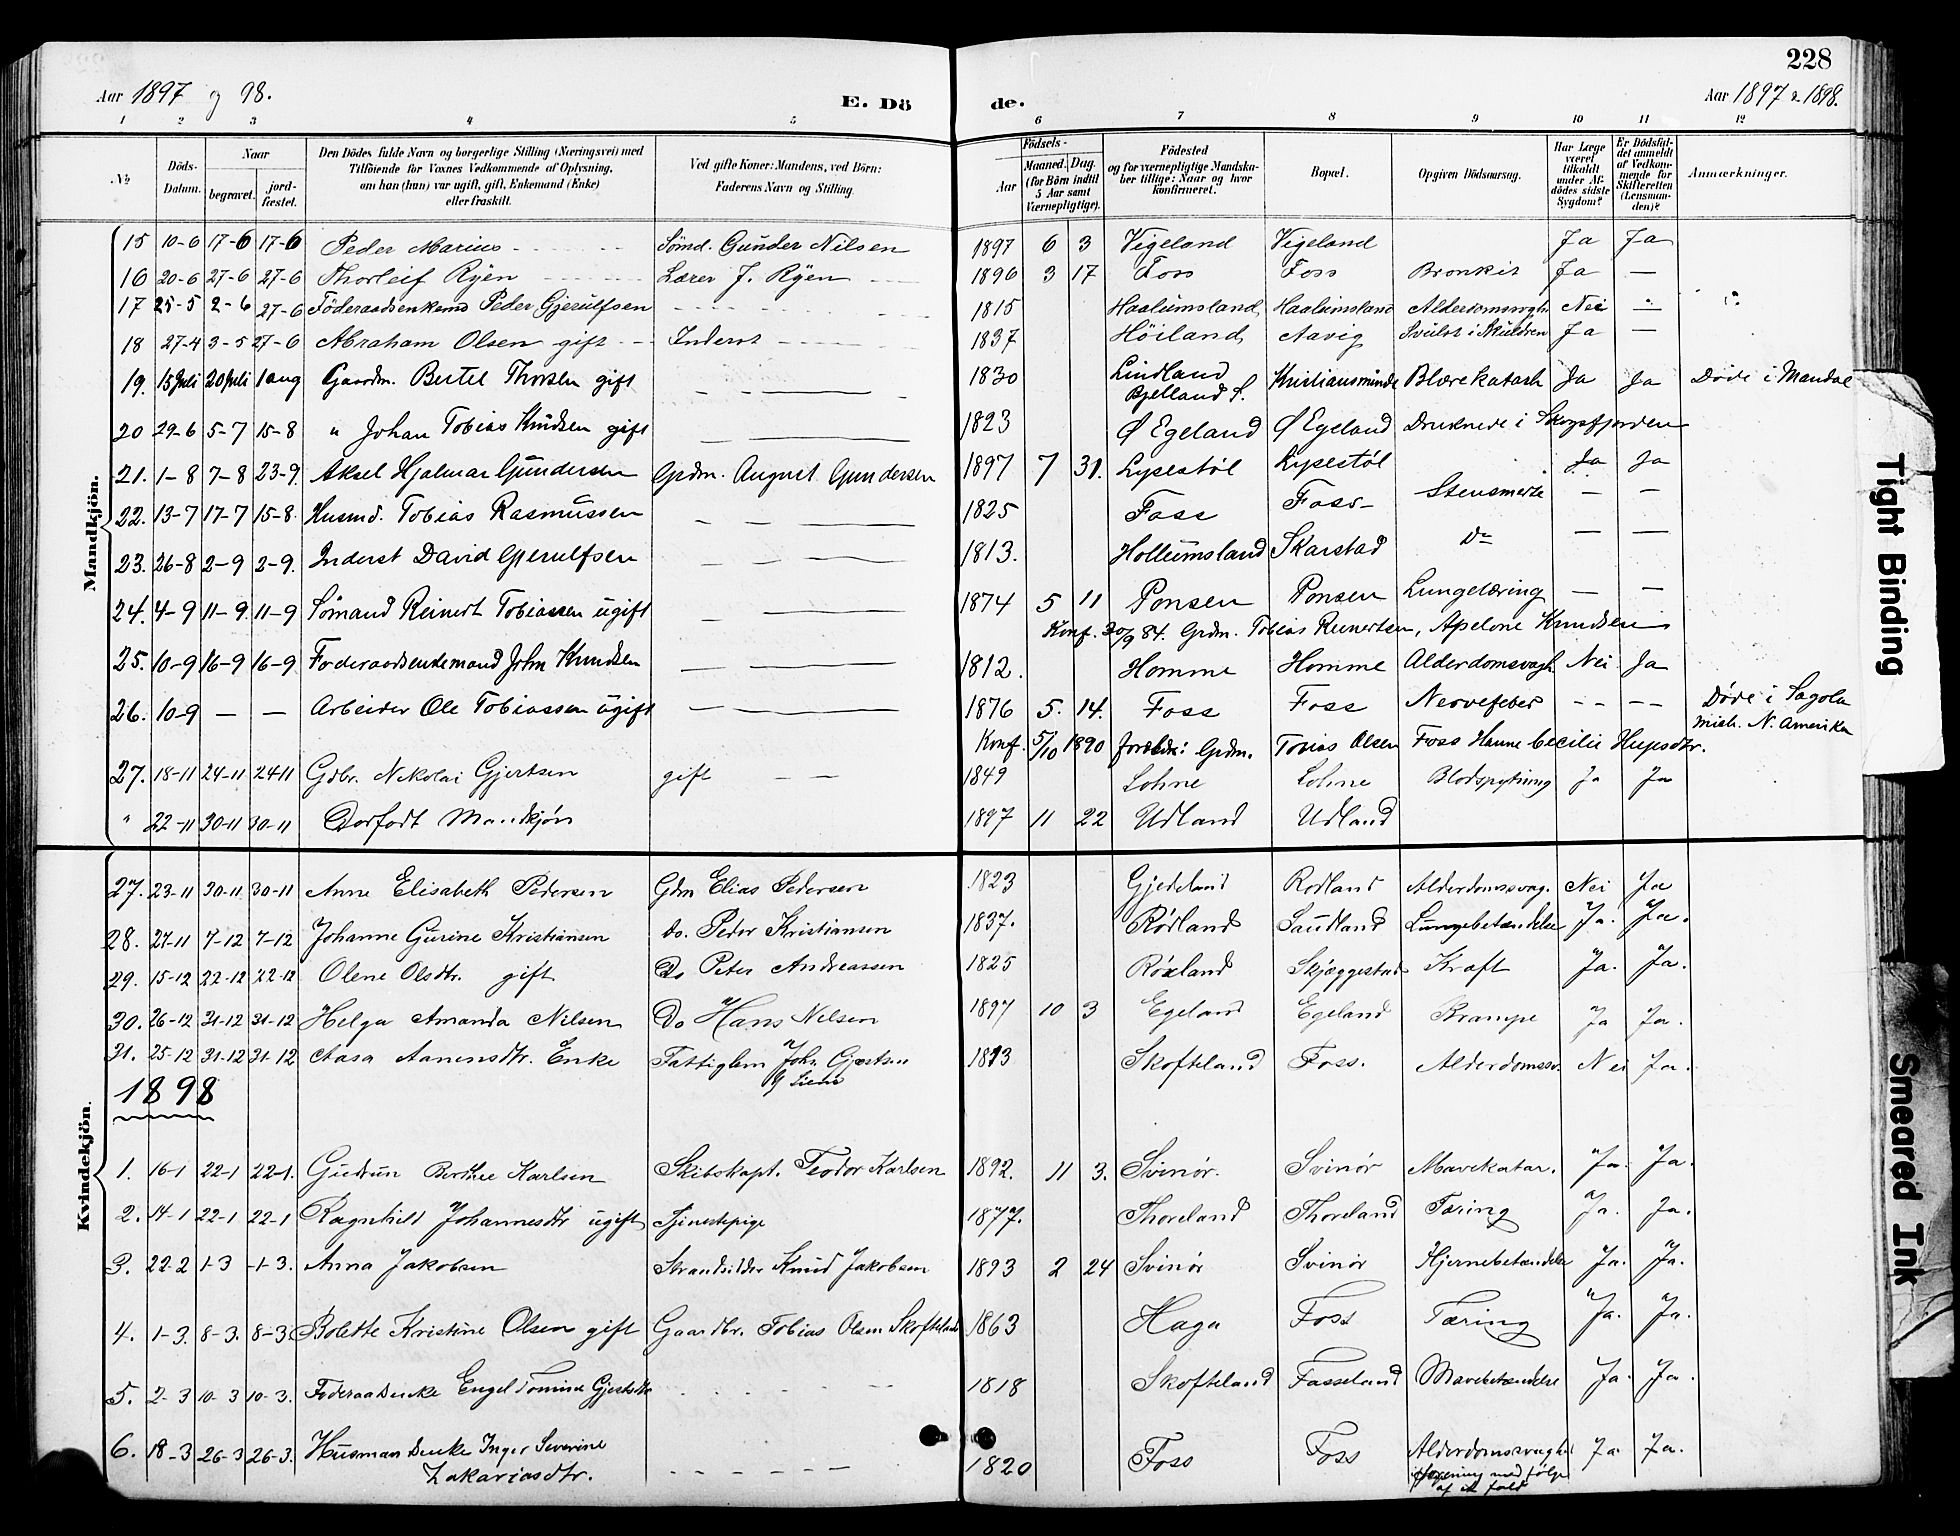 228
Aar 1897 og 98. E. Döde. Aar 1897 & 1898.
1 2 3 4 5 6 7 8 9 10 11 12
№ Döds-Datum. Naar begravet. jordfæstet. Den Dödes fulde Navn og borgerlige Stilling (Næringsvei) med Tilföiende for Voxnes Vedkommende af Oplysning, om han (hun) var ugift, gift, Enkemand (Enke) eller fraskilt. Ved gifte Koner: Mandens, ved Börn: Faderens Navn og Stilling. Födsels- Aar Maaned. Dag. (for Börn indtil 5 Aar samt Værnepligtige). Födested og for værnepligtige Mandskaber tillige: Naar og hvor konfirmeret. Bopæl. Opgiven Dödsaarsag. Har Læge været tilkaldt under Afdödes sidste Sygdom? Er Dödsfaldet anmeldt af Vedkommende for Skifteretten (Lensmanden)? Anmærkninger.
Mandkjön.
15 10-6 17-6 17-6 Peder Marius Sömd. Gunder Nilsen 1897 6 3 Vigeland Vigeland Ja Ja
16 20-6 27-6 27-6 Thorleif Ryen Lærer J. Ryen 1896 3 17 Foss Foss Bronkit Ja —
17 25-5 2-6 27-6 Föderaadsenkemd Peder Gjerulfsen 1815 Haalumsland Haalumsland Alderdomssvagh. Nei —
18 27-4 3-5 27-6 Abraham Olsen gift Inderst 1837 Höiland Aavig Svulst i Skuldren Ja —
19. 15 Juli 20 Juli 1 aug Gaardm. Bertel Thorsen gift 1830 Lindland Bjelland S. Kristiansminde Blærekatarh Ja Ja Döde i Mandal
20 29-6 5-7 15-8 " Johan Tobias Knudsen gift 1823 Ø Egeland Ø Egeland Druknede i Skogsfjorden
21. 1-8 7-8 23-9. Aksel Hjalmar Gundersen Grdm. August Gundersen 1897 7 31. Lypestöl Lypestöl Ja Ja
22. 13-7 17-7 15-8. Husmd. Tobias Rasmussen 1825 Foss Foss Stensmerte — —
23. 26-8 2-9 2-9. Inderst David Gjerulfsen 1813. Hollumsland Skarstad Do — —
24. 4-9 11-9. 11-9 Sömand Reinert Tobiassen ugift 1874 5 11 Ponsen Ponsen Lungetæring — —
Konf. 30/9 84. Grdm. Tobias Reinertsen, Apelone Knudsen
25. 10-9 16-9 16-9 Foderaadsenkemand John Knudsen 1812. Homme Homme Alderdomsvagh. Nei Ja
26. 10-9 — — Arbeider Ole Tobiassen ugift 1876 5. 14. Foss Foss Nervefeber - - - - Döde i Sagola Mich. N. Amerika
Konf. 5/10 1890 forældr: Grdm. Tobias Olsen Foss Hanne Cecilie
27. 18-11 24-11 24 11 Gdbr. Nikolai Gjertsen gift 1849 Lohne Lohne Blodspytning Ja Ja
" 22-11 30-11 30-11 Dorfödt Mandkjön 1897 11 22 Udland Udland
Kvindekjön.
27. 23-11 30-11 30-11 Anne Elisabeth Pedersen Gdm Elias Pedersen 1823 Gjedeland Rodland Alderdomssvag. Nei Ja
28. 27-11 7-12 7-12 Johanne Gurine Kristiansen do. Peder Kristiansen 1837. Rödland Saudland Lungebetændelse Ja. Ja.
29. 15-12 22-12 22-12 Olene Olsdtr. gift Do Peter Andreassen 1825 Röxland Skjæggestad Kræft Ja. Ja.
30. 26-12 31-12 31-12 Helga Amanda Nilsen Do Hans Nilsen 1897 10 3 Egeland Egeland Krampe Ja Ja.
31. 25-12 31-12 31-12 Aasa Aanensdtr. Enke Fattiglem Johs. Gjertsen 1813 Skofteland Foss. Alderdomssv. Nei Ja.
1898
1. 16-1 22-1 22-1. Gudrun Berthee Karlsen Skibskapt. Teodor Karlsen 1892. 11 3. Svinör. Svinör Mavekatar. Ja. Ja.
2. 14-1 22-1 22-1 Ragnhild Johannesdtr ugift Tjenestepige 1877. Thoreland Thoreland Tæring Ja. Ja.
3. 22-2 1-3 1-3. Anna Jakobsen Strandsidder Knud Jakobsen 1893 2 24 Svinör Svinör Hjernebetændelse Ja. Ja.
4. 1-3. 8-3. 8-3. Bolette Kristine Olsen gift Gaardbr. Tobias Olsen Skofteland 1863 Haga Foss Tæring Ja. Ja.
5. 2-3 10-3 10-3. Foderaadsenke Engel Tomine Gjertsdtr 1818 Skofteland Fasseland Mavebetændelse Ja. Ja.
6. 18-3 26-3 26-3. Husmandsenke Inger Severine Zakariasdtr. 1820 Foss Foss Alderdomssvaghed med fölge af et fald Ja. Ja.
Tight Binding
Smeared Ink